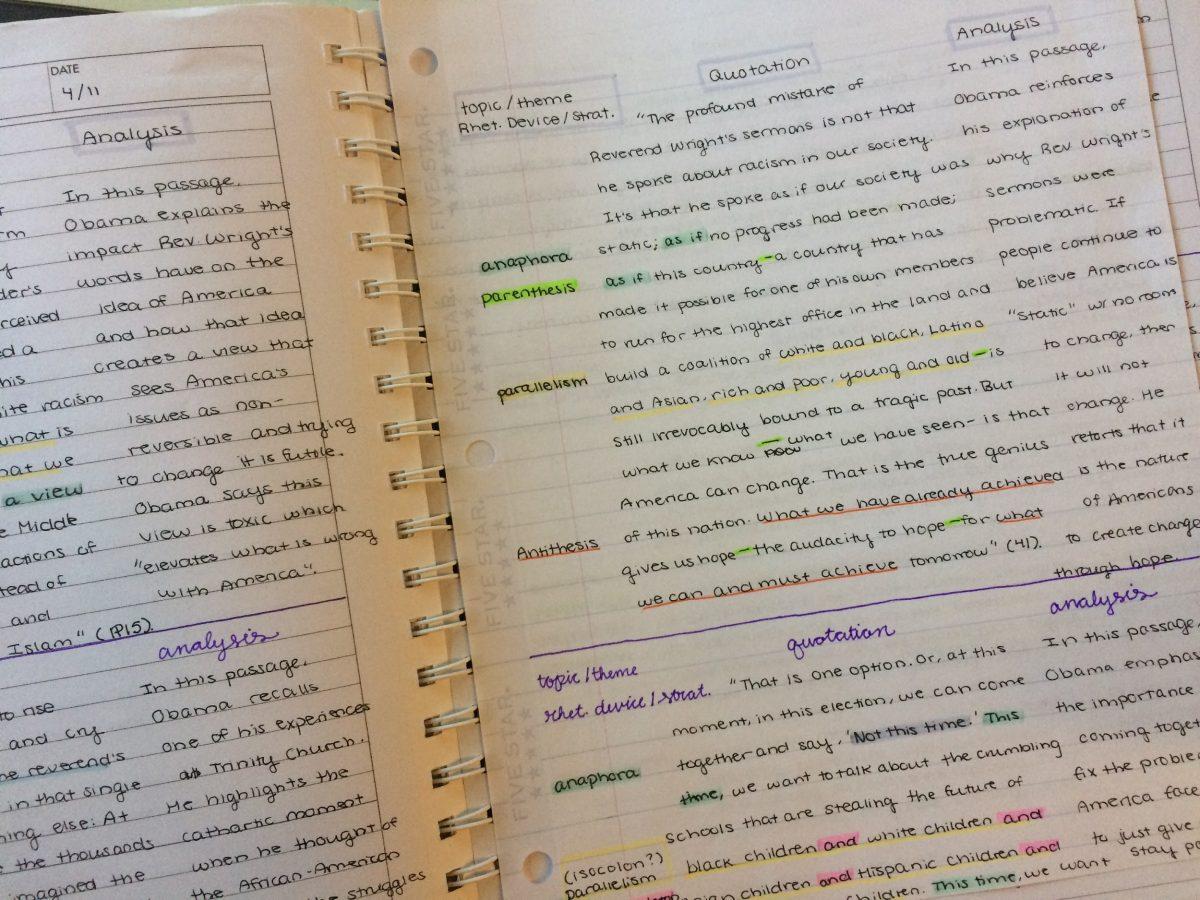 DATE
4/11
Analysis
In this passage,
Obama explains the
impact Rev. Wright's
words have on the
idea of America
and how that idea
creates a view that
sees America's
issues as non-
reversible and trying
to change it is futile.
Obama says this
view is toxic which
"elevates what is wrong
with America".
racism
what is
what we
a view
Middle
actions of
and
Islam" (P15)
analysis
In this passage,
Obama recalls
one of his experiences
Trinity Church.
He highlights the
cathartic moment
when he thought of
the African-American
struggles
to rise
and cry
reverend's
in that single
else: At
the thousands
imagined the
FIVE STAR.
FIVE STAR.
FIVE STAR.
FIVE STAR.
FIVE STAR.
topic/theme
Rhet. Device/Strat.
Quotation
Analysis
"The profound mistake of
Reverend Wright's sermons is not that
he spoke about racism in our society.
It's that he spoke as if our society was
static; as if no progress had been made;
as if this country - a country that has
made it possible for one of his own members
to run for the highest office in the land and
build a coalition of white and black, Latino
and Asian, rich and poor, young and old - is
still irrevocably bound to a tragic past. But
what we know - what we have seen - is that
America can change. That is the true genius
of this nation. What we have already achieved
gives us hope - the audacity to hope - for what
we can and must achieve tomorrow" (41).
anaphora
parenthesis
parallelism
Antithesis
In this passage,
Obama reinforces
his explanation of
why Rev Wright's
sermons were
problematic. If
people continue to
believe America is
"static" w/ no room
to change, then
it will not
change. He
retorts that it
is the nature
of Americans
to create change
through hope.
topic/theme
rhet. device/strat.
quotation
analysis
"That is one option. Or, at this
moment, in this election, we can come
together and say, 'Not this time.' This
time, we want to talk about the crumbling
schools that are stealing the future of
black children and white children and
children and Hispanic children and
children. This time, we want
anaphora
(isocolon?)
Parallelism
In this passage,
Obama
the importance
coming
fix the
America
to just give
stay